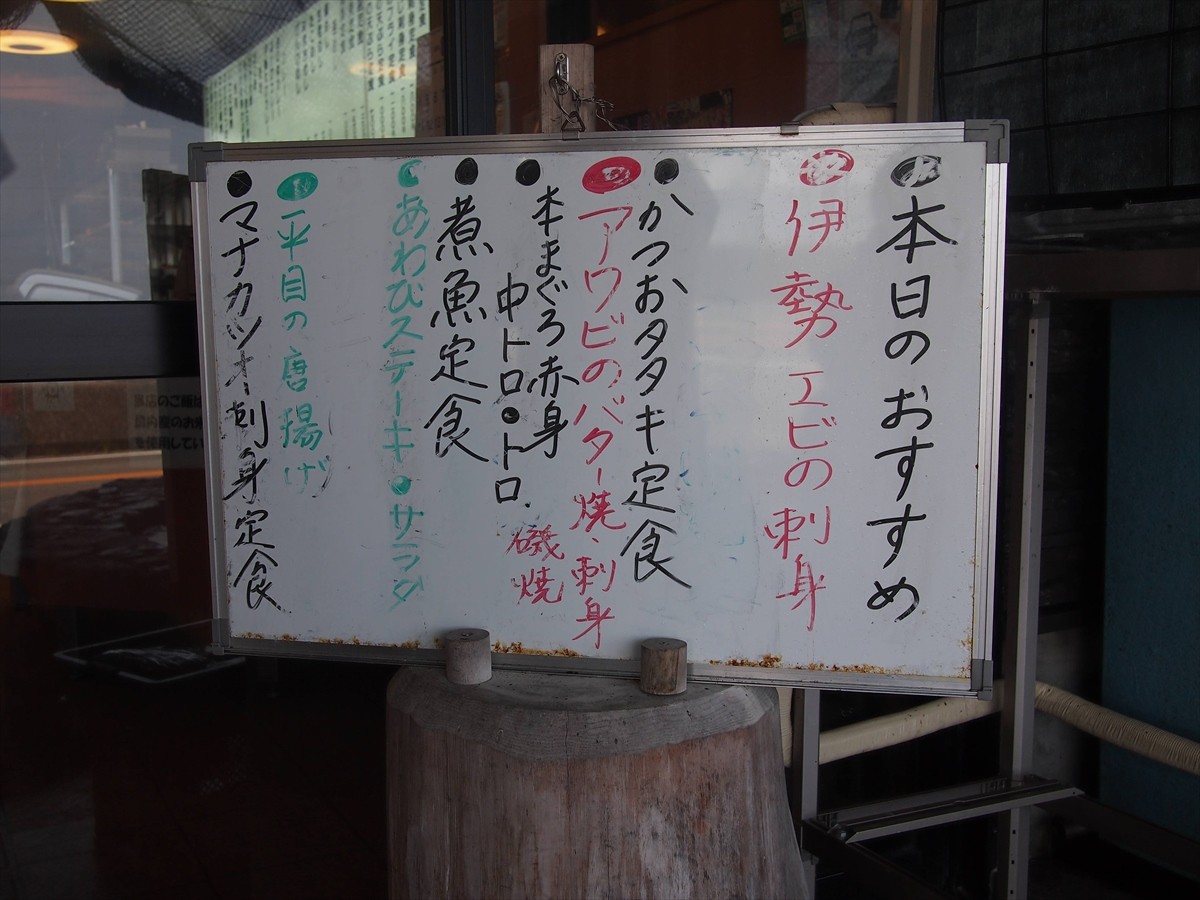 ●本日のおすすめ
●伊勢エビの刺身
●かつおタタキ定食
●アワビのバター焼、刺身
磯焼
●本まぐろ赤身
中トロ・トロ
●煮魚定食
●あわびステーキ・サラダ
●平目の唐揚げ
●マナカツオ刺身定食